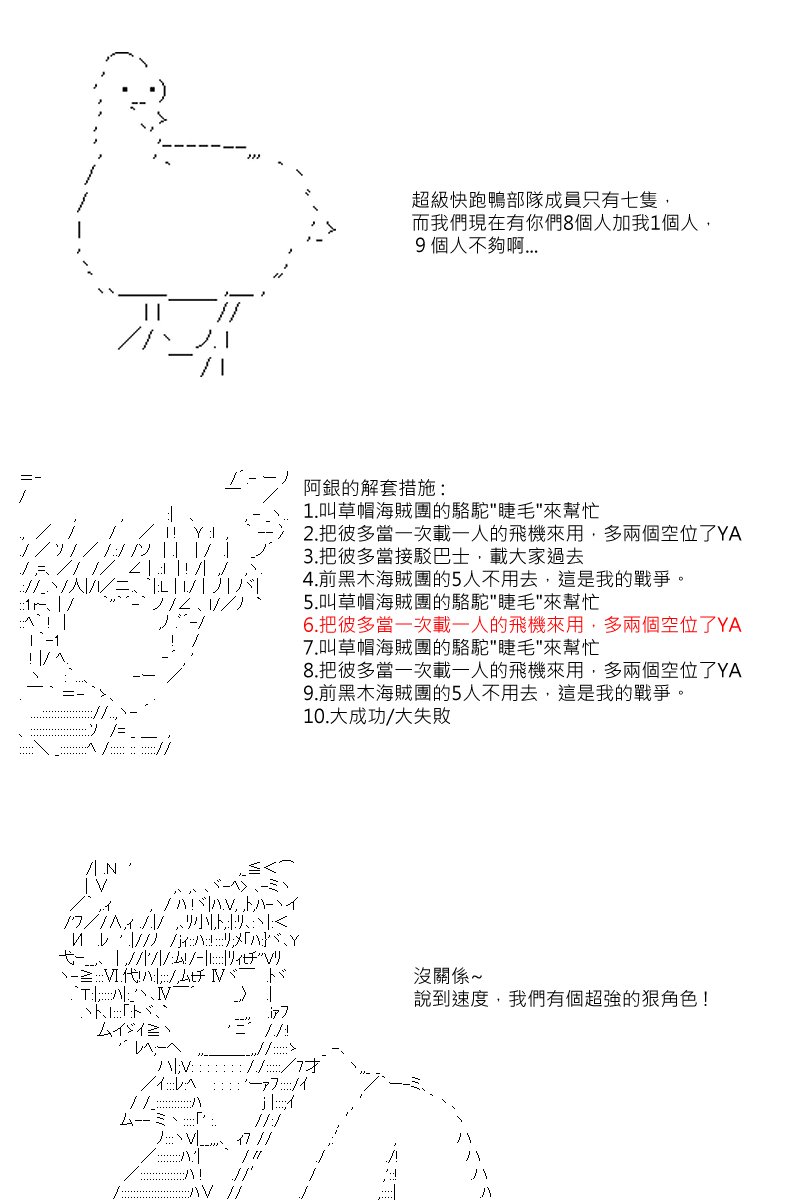 超級快跑鴨部隊成員只有七隻，
而我們現在有你們8個人加我1個人，
9個人不夠啊...
阿銀的解套措施：
1.叫草帽海賊團的駱駝"睫毛"來幫忙
2.把彼多當一次載一人的飛機來用，多兩個空位了YA
3.把彼多當接駁巴士，載大家過去
4.前黑木海賊團的5人不用去，這是我的戰爭。
5.叫草帽海賊團的駱駝"睫毛"來幫忙
6.把彼多當一次載一人的飛機來用，多兩個空位了YA
7.叫草帽海賊團的駱駝"睫毛"來幫忙
8.把彼多當一次載一人的飛機來用，多兩個空位了YA
9.前黑木海賊團的5人不用去，這是我的戰爭。
10.大成功/大失敗
沒關係~
說到速度，我們有個超強的狠角色！